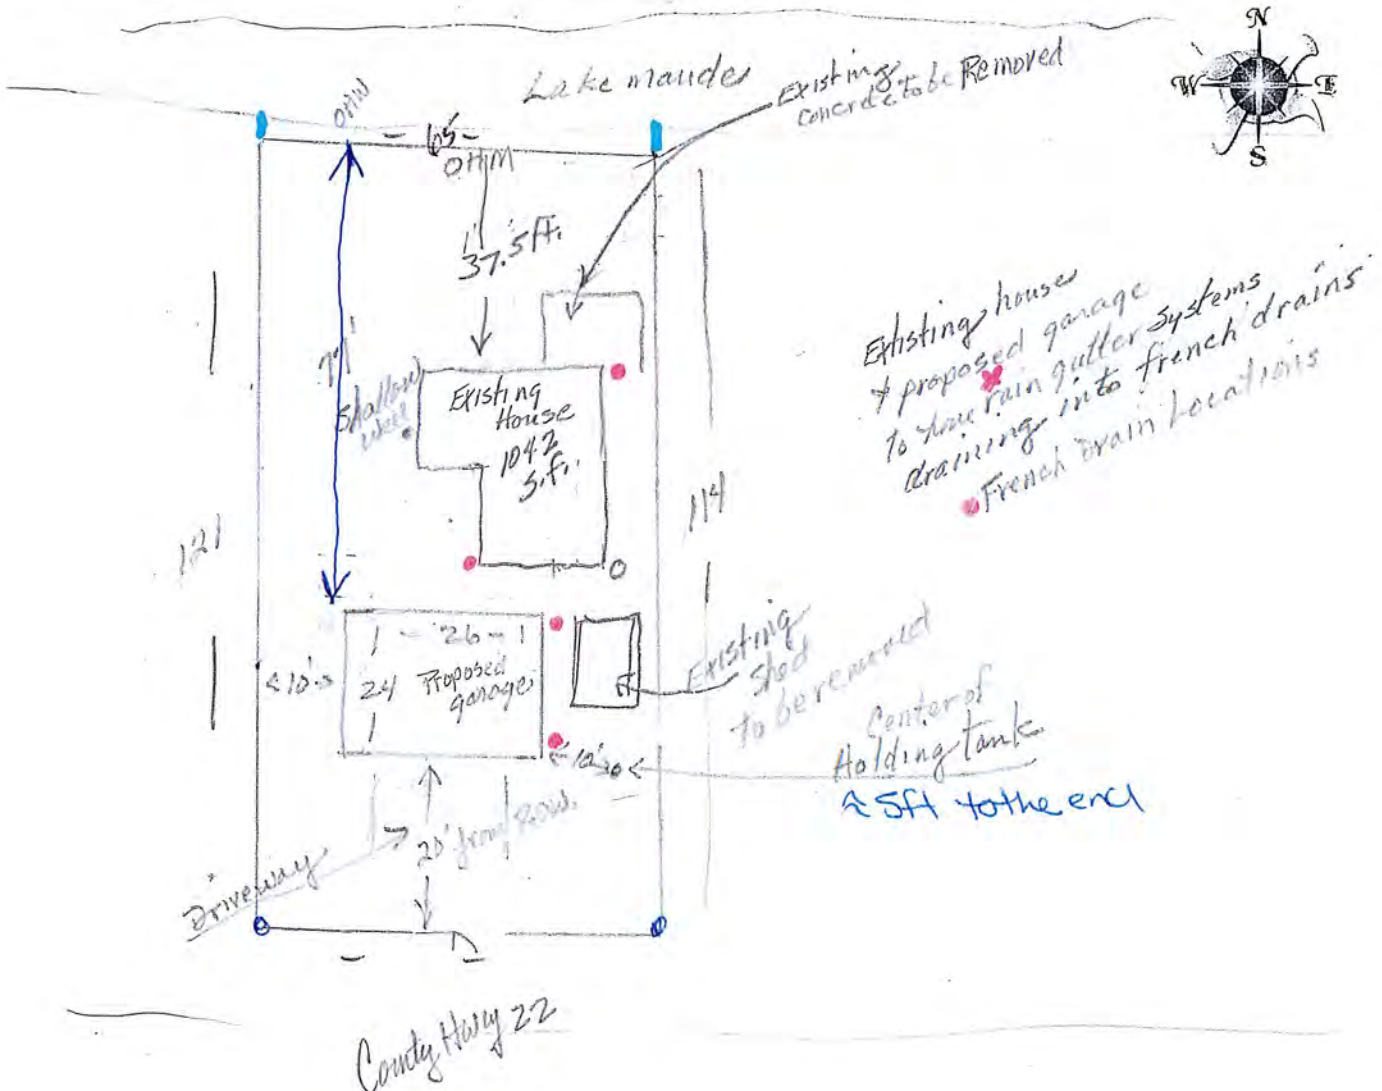 N
W E
S
Lake maude
Existing
concrete to be Removed
OHW
- 65' -
OHM
37.5 ft.
77'
Shallow
well
Existing
House
1042
s.f.
Existing house
+ proposed garage
to have rain gutter systems
draining into french drains
French Drain Locations
121
114
26
24 Proposed
garage
10'
Existing
Shed
to be removed
Center of
Holding tank
≈ 5ft to the end
10'
20' from R.O.W.
Driveway
County Hwy 22